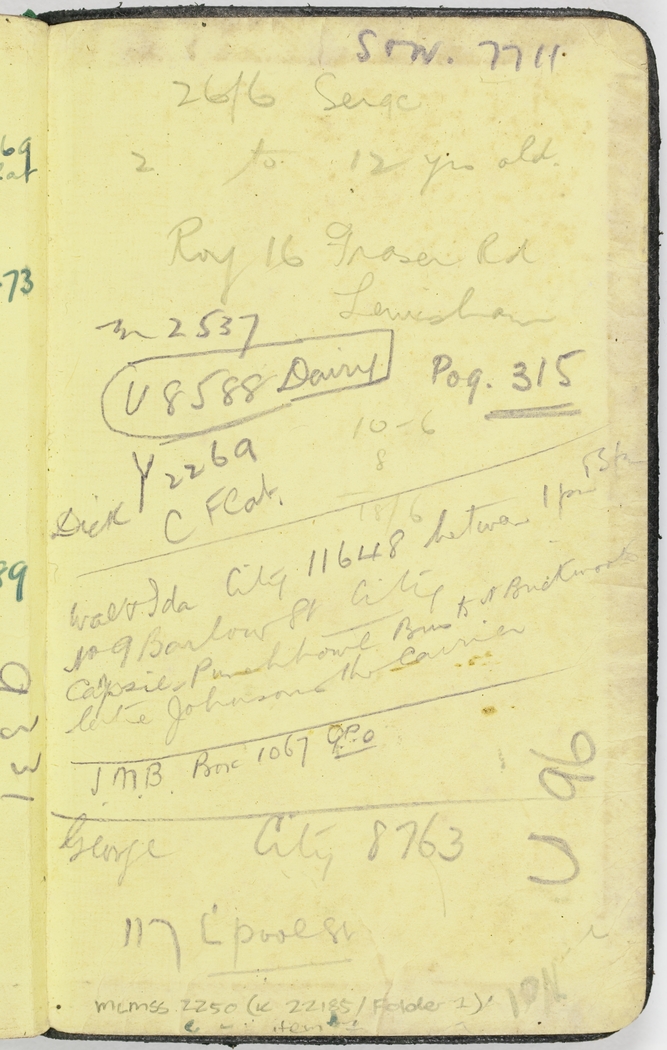 69
73
SOW. 7711
26/6 Serge
2 to 12 yrs old.
Roy 16 Fraser Rd
Lewisham
2537
U 8588 Dairy
Pog. 315
10-6
8
18/6
Y 2269
Dick C Flat.
Walt & Ida City 11648 between 1 pm
109 Barlow St City
Capsie Punchbowl Bus to
late Johnson the Carrier
J.M.B. Box 1067 GPO
George City 8763
U 96
117 L'pool St
MLMSS 2250 (K 22185/Folder 1)
item